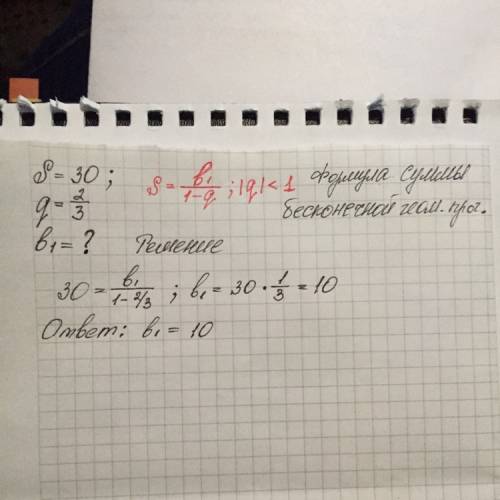 S = 30 ;
q = 2/3
b₁ = ?
S = b₁/(1-q) ; |q| < 1
Формула суммы
бесконечной геом. прог.
Решение
30 = b₁/(1 - 2/3) ; b₁ = 30 · 1/3 = 10
Ответ: b₁ = 10